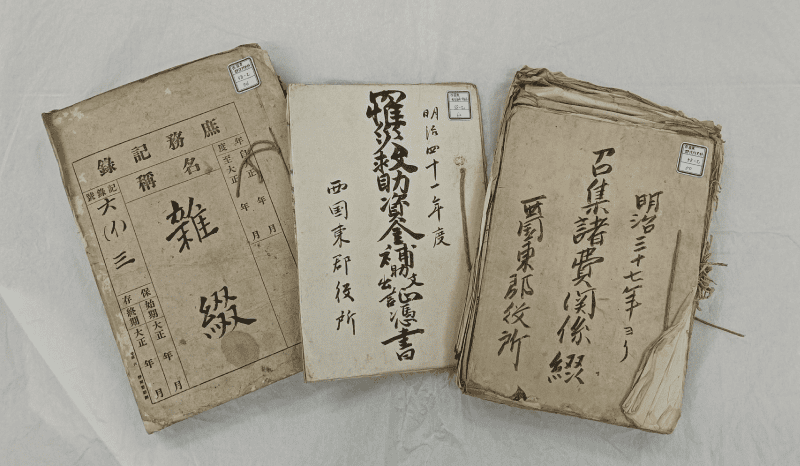 庶務記錄
名稱
年度
自大正 年 月
至大正 年 月
雜綴
記錄號
六(イ)三
保存
始期大正 年 月
終期大正 年 月
明治四十一年度
罹災救助資金補助支出証憑書
西国東郡役所
明治三十七年ヨリ
召集諸費関係綴
西国東郡役所